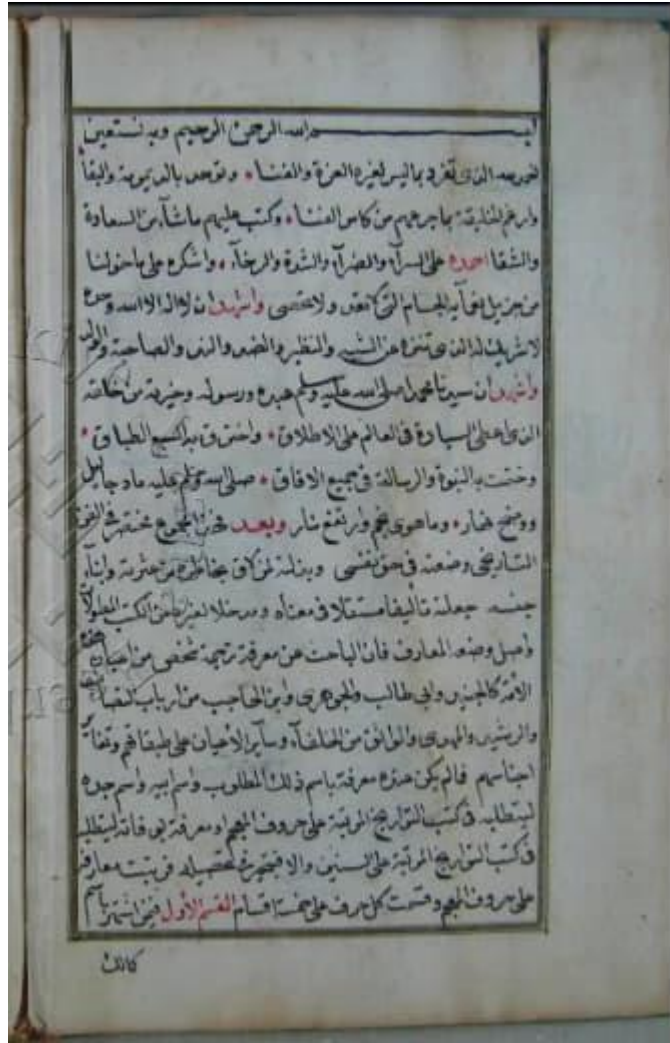 بسم الله الرحمن الرحيم وبه نستعين
الحمد لله الذي تفرد بماليس لغيره العزة والفناء وتوحد بالديمومة والبقا
وارغم الخليقة بما جرعهم من كاس الفناء وكتب عليهم ماشآء من السعادة
والشقا احمده على السرآء والضرآء والشدة والرخآء واشكره على ماخولنا
من جزيل نعمآيه الجسام التى لاتعد ولا تحصى واشهد ان لا اله الا الله وحده
لا شريك له الذى تنزه عن الشبيه والنظير والضد والند والصاحبة والولد
واشهد ان سيدنا محمدا صلى الله عليه وسلم عبده ورسوله وخيرته من خلقه
الذى اعطى السيادة فى العالم على الاطلاق واخترق به السبع الطباق
وختمت به النبوة والرسالة فى جميع الافاق صلى الله وسلم عليه ما دجا ليل
ووضح نهار وما هوى نجم وارتفع منار وبعد فهذا مجموع مختصر فى الفن
التاريخى وضعته فى حق نفسى وبذلته لمن كان بخاطره من عترته وابنآء
جنسه جعلته تأليفا مستقلا فى معناه ومدخلا لغيره من الكتب المطولات
واصل وضعه المعارف فان الباحث عن معرفة ترجمة شخص من اعيان هذه
الأئمة كالجنيد وابى طالب والجوهرى وابن الحاجب من ارباب
والرشيد والمهدى والواثق من الخلفآء وسآير الأعيان على طبقاتهم
اجناسهم فالم يكن عنده معرفة باسم ذلك المطلوب واسم ابيه واسم جده
ليتطلبه فى كتب التواريخ المرتبة على حروف المعجم او معرفة بوفاته ليتطلبه
فى كتب التواريخ المرتبة على السنين والا فيتحير فى تحصيله فرتبت معارفه
على حروف المعجم وقسمت كل حرف على خمسة اقسام القسم الأول فيمن اشتهر باسم
كانت